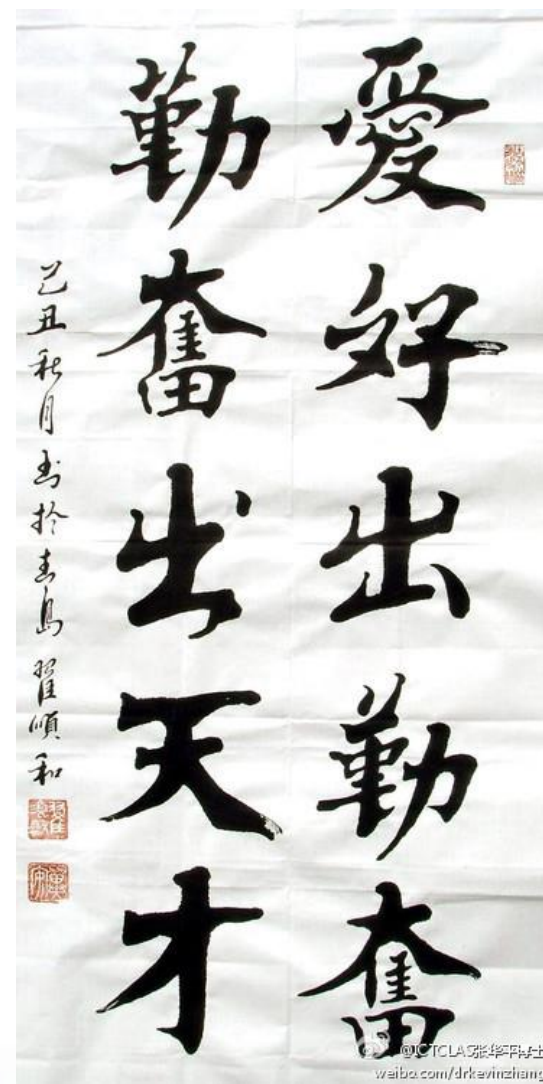 愛好出勤奮
勤奮出天才
己丑秋月书於青島翟順和
@ICTCLAS张华平博士
weibo.com/drkevinzhang